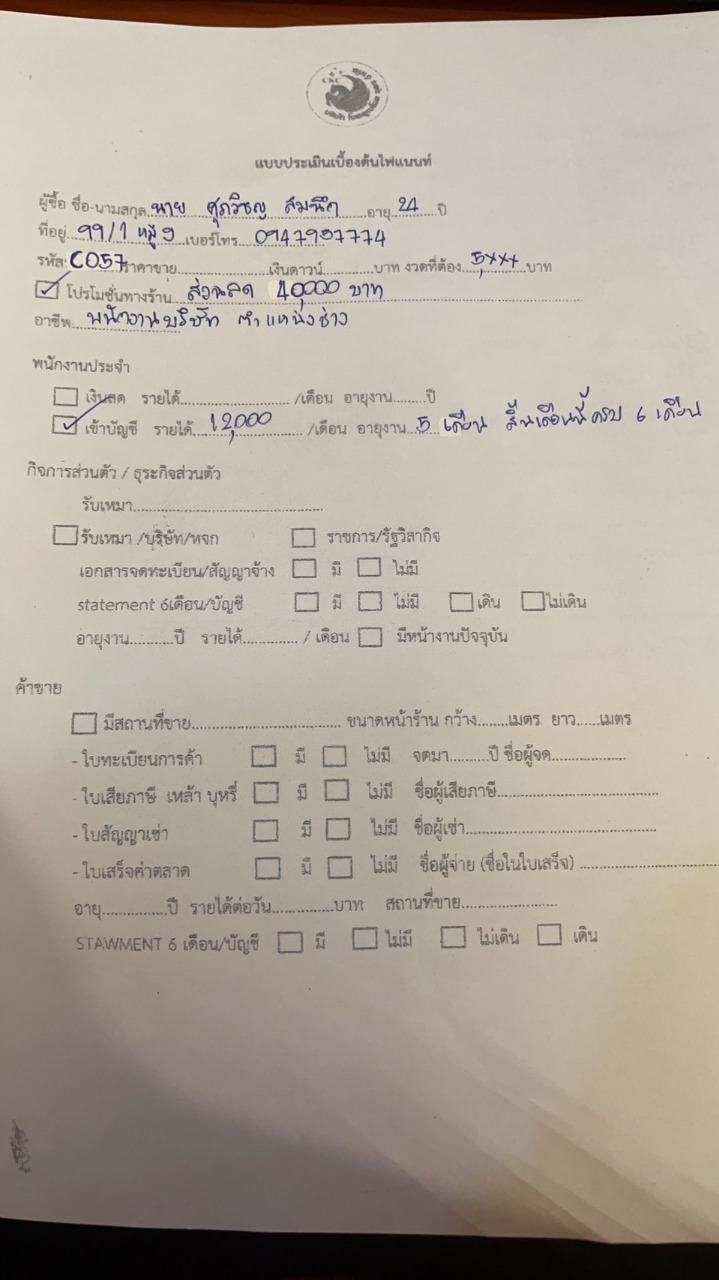 แบบประเมินเบื้องต้นไฟแนนท์
ผู้ซื้อ ชื่อ-นามสกุล นาย ศุภวิชญ สมนึก อายุ 21 ปี
ที่อยู่ 99/1 หมู่ 9 เบอร์โทร 0947937774
รหัส: C057 ราคาขาย........................เงินดาวน์.............บาท งวดที่ต้อง 5,xxx บาท
โปรโมชั่นทางร้าน ส่วนลด 40,000 บาท
อาชีพ พนักงานบริษัท ตำแหน่งช่าง
พนักงานประจำ
เงินสด รายได้........................ /เดือน อายุงาน........ปี
เข้าบัญชี รายได้ 12,000 /เดือน อายุงาน 5 เดือน สิ้นเดือนนี้ครบ 6 เดือน
กิจการส่วนตัว / ธุระกิจส่วนตัว
รับเหมา..........................................
รับเหมา /บริษัท/หจก ราชการ/รัฐวิสากิจ
เอกสารจดทะเบียน/สัญญาจ้าง มี ไม่มี
statement 6เดือน/บัญชี มี ไม่มี เดิน ไม่เดิน
อายุงาน...........ปี รายได้............. / เดือน มีหน้างานปัจจุบัน
ค้าขาย
มีสถานที่ขาย.................................. ขนาดหน้าร้าน กว้าง........เมตร ยาว......เมตร
- ใบทะเบียนการค้า มี ไม่มี จดมา..........ปี ชื่อผู้จด...................
- ใบเสียภาษี เหล้า บุหรี่ มี ไม่มี ชื่อผู้เสียภาษี.....................................
- ใบสัญญาเช่า มี ไม่มี ชื่อผู้เช่า............................................
- ใบเสร็จค่าตลาด มี ไม่มี ชื่อผู้จ่าย (ชื่อในใบเสร็จ) ................................
อายุ...............ปี รายได้ต่อวัน...............บาท สถานที่ขาย.......................
STAWMENT 6 เดือน/บัญชี มี ไม่มี ไม่เดิน เดิน